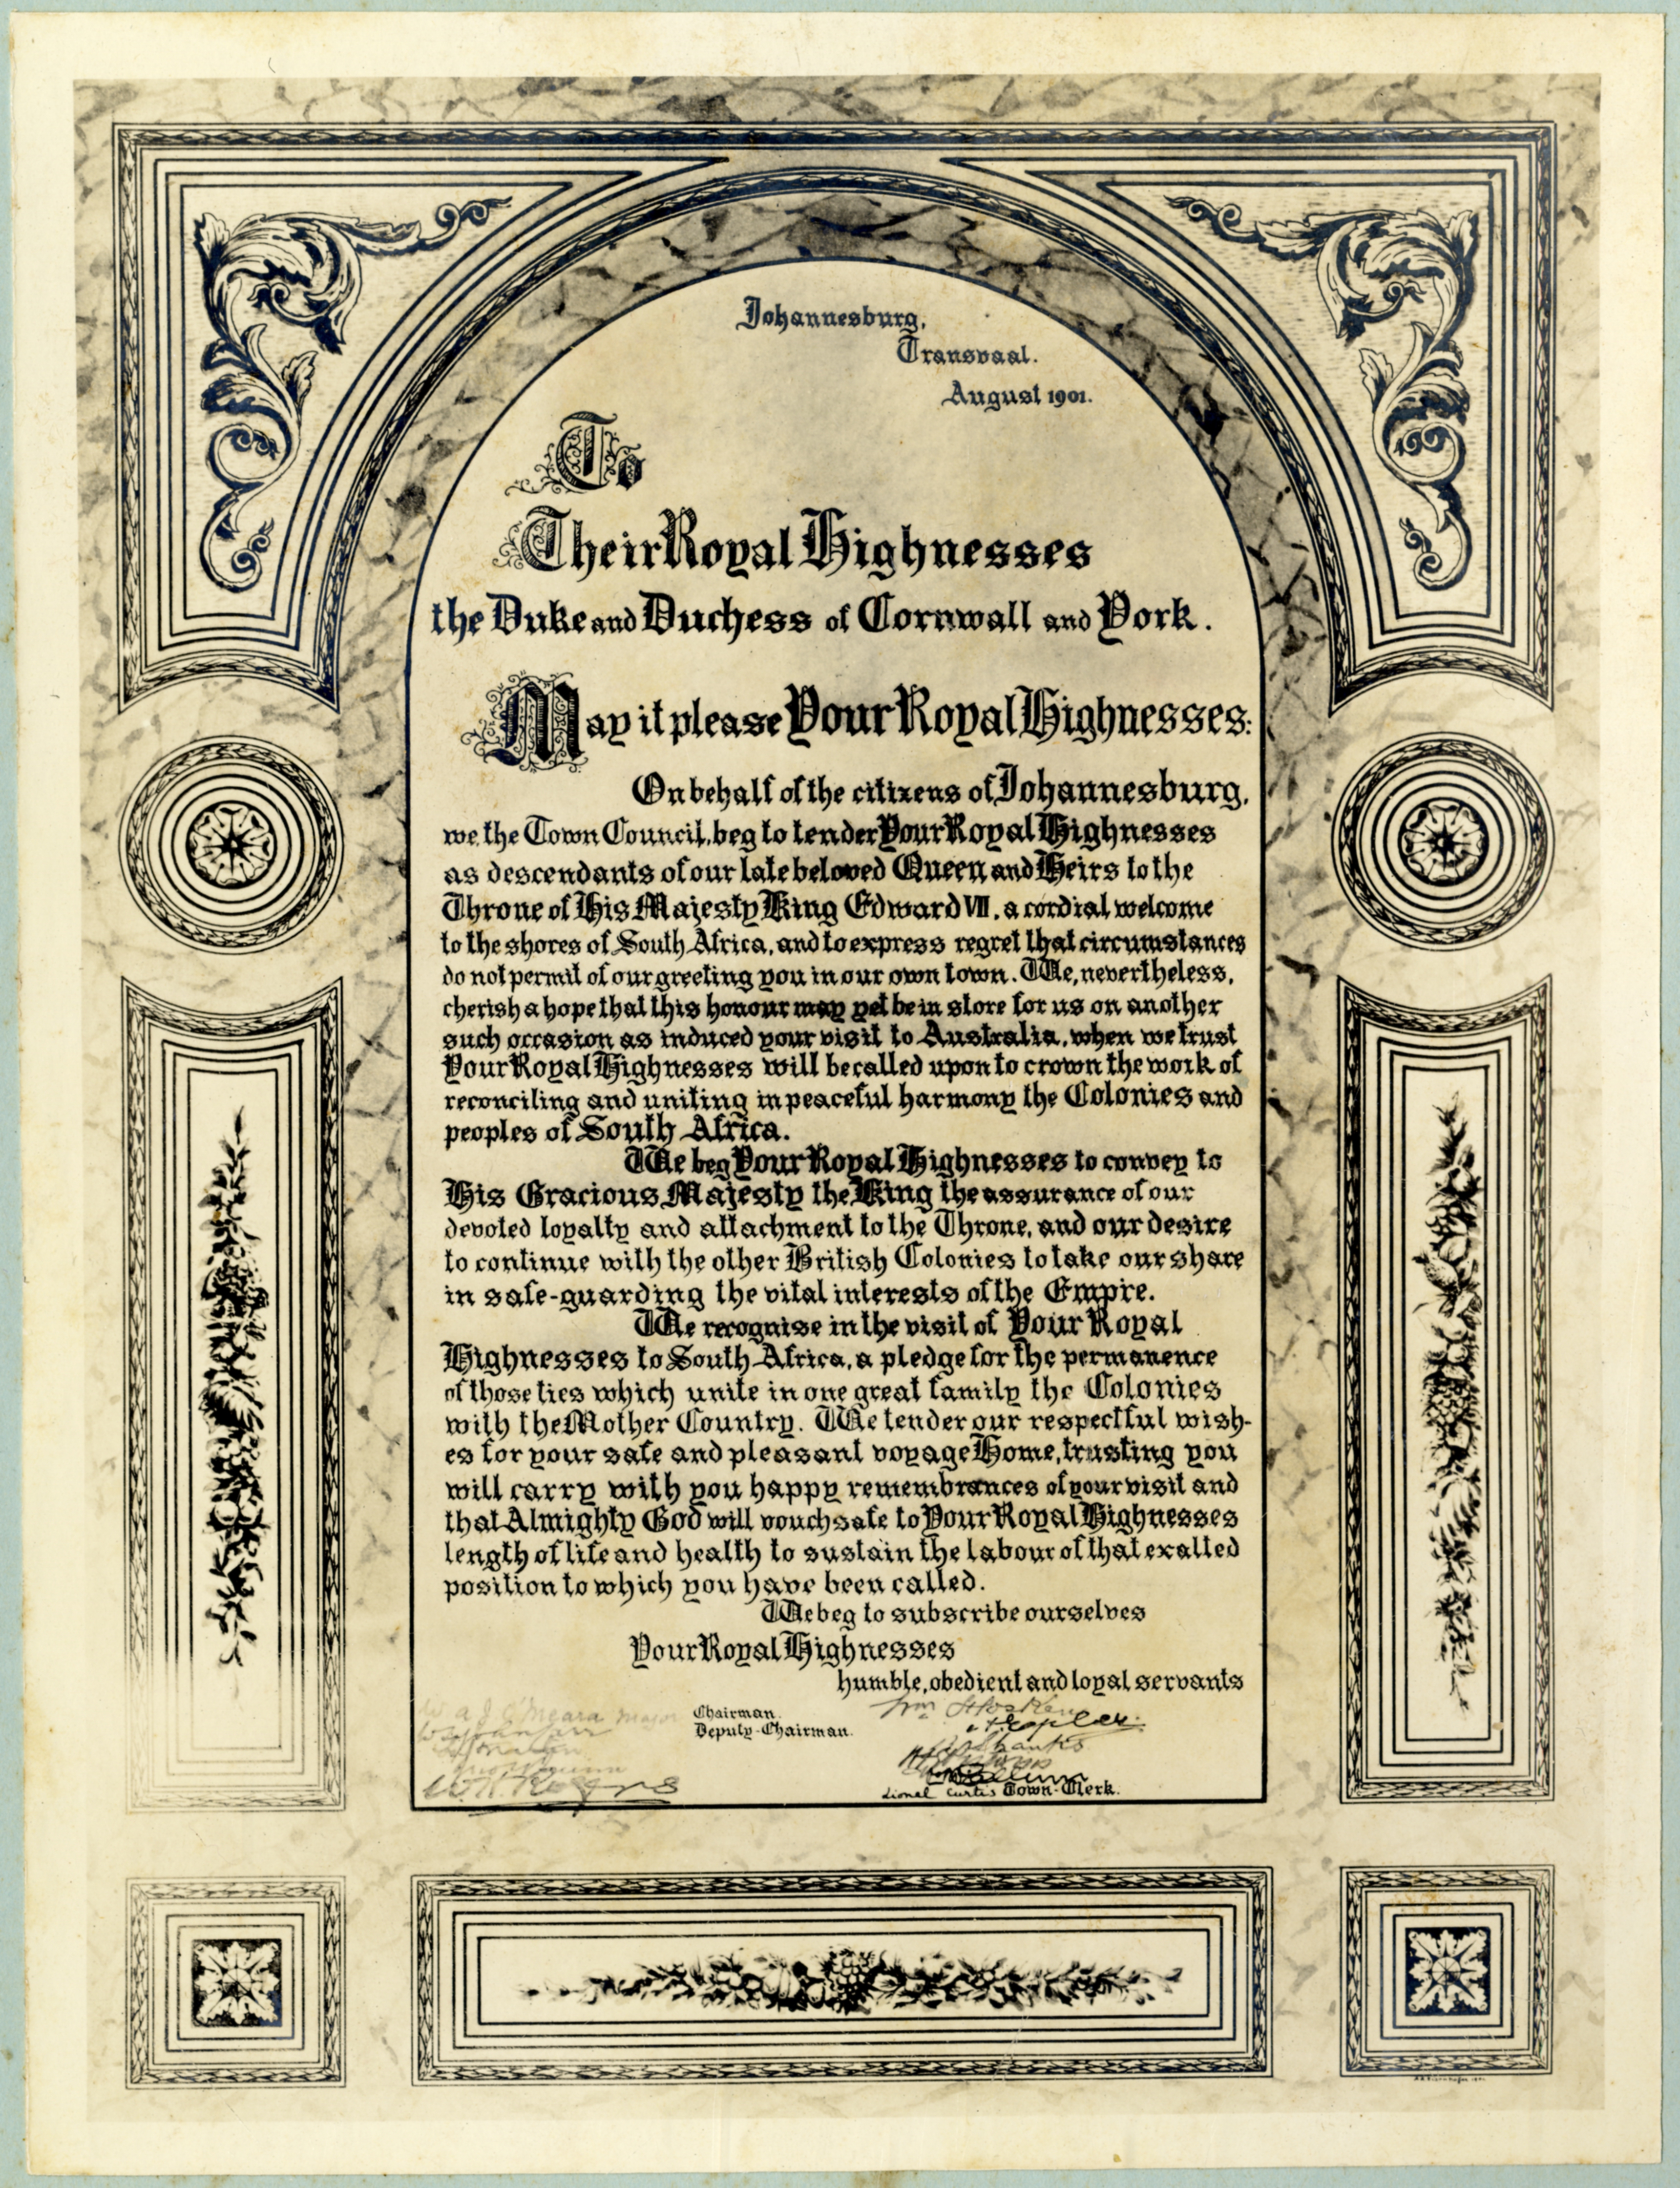 Johannesburg,
Transvaal.
August 1901.
To
Their Royal Highnesses
the Duke and Duchess of Cornwall and York.
May it please Your Royal Highnesses:
On behalf of the citizens of Johannesburg,
we, the Town Council, beg to tender Your Royal Highnesses
as descendants of our late beloved Queen and Heirs to the
Throne of His Majesty King Edward VII, a cordial welcome
to the shores of South Africa, and to express regret that circumstances
do not permit of our greeting you in our own town. We, nevertheless,
cherish a hope that this honour may yet be in store for us on another
such occasion as induced your visit to Australia, when we trust
Your Royal Highnesses will be called upon to crown the work of
reconciling and uniting in peaceful harmony the Colonies and
peoples of South Africa.
We beg Your Royal Highnesses to convey to
His Gracious Majesty the King the assurance of our
devoted loyalty and attachment to the Throne, and our desire
to continue with the other British Colonies to take our share
in safe-guarding the vital interests of the Empire.
We recognise in the visit of Your Royal
Highnesses to South Africa, a pledge for the permanence
of those ties which unite in one great family the Colonies
with the Mother Country. We tender our respectful wish-
es for your safe and pleasant voyage Home, trusting you
will carry with you happy remembrances of your visit and
that Almighty God will vouchsafe to Your Royal Highnesses
length of life and health to sustain the labour of that exalted
position to which you have been called.
We beg to subscribe ourselves
Your Royal Highnesses
humble, obedient and loyal servants
W A J O'Meara Major Chairman. Wm Hosken
Deputy-Chairman.
Lionel Curtis Town-Clerk.